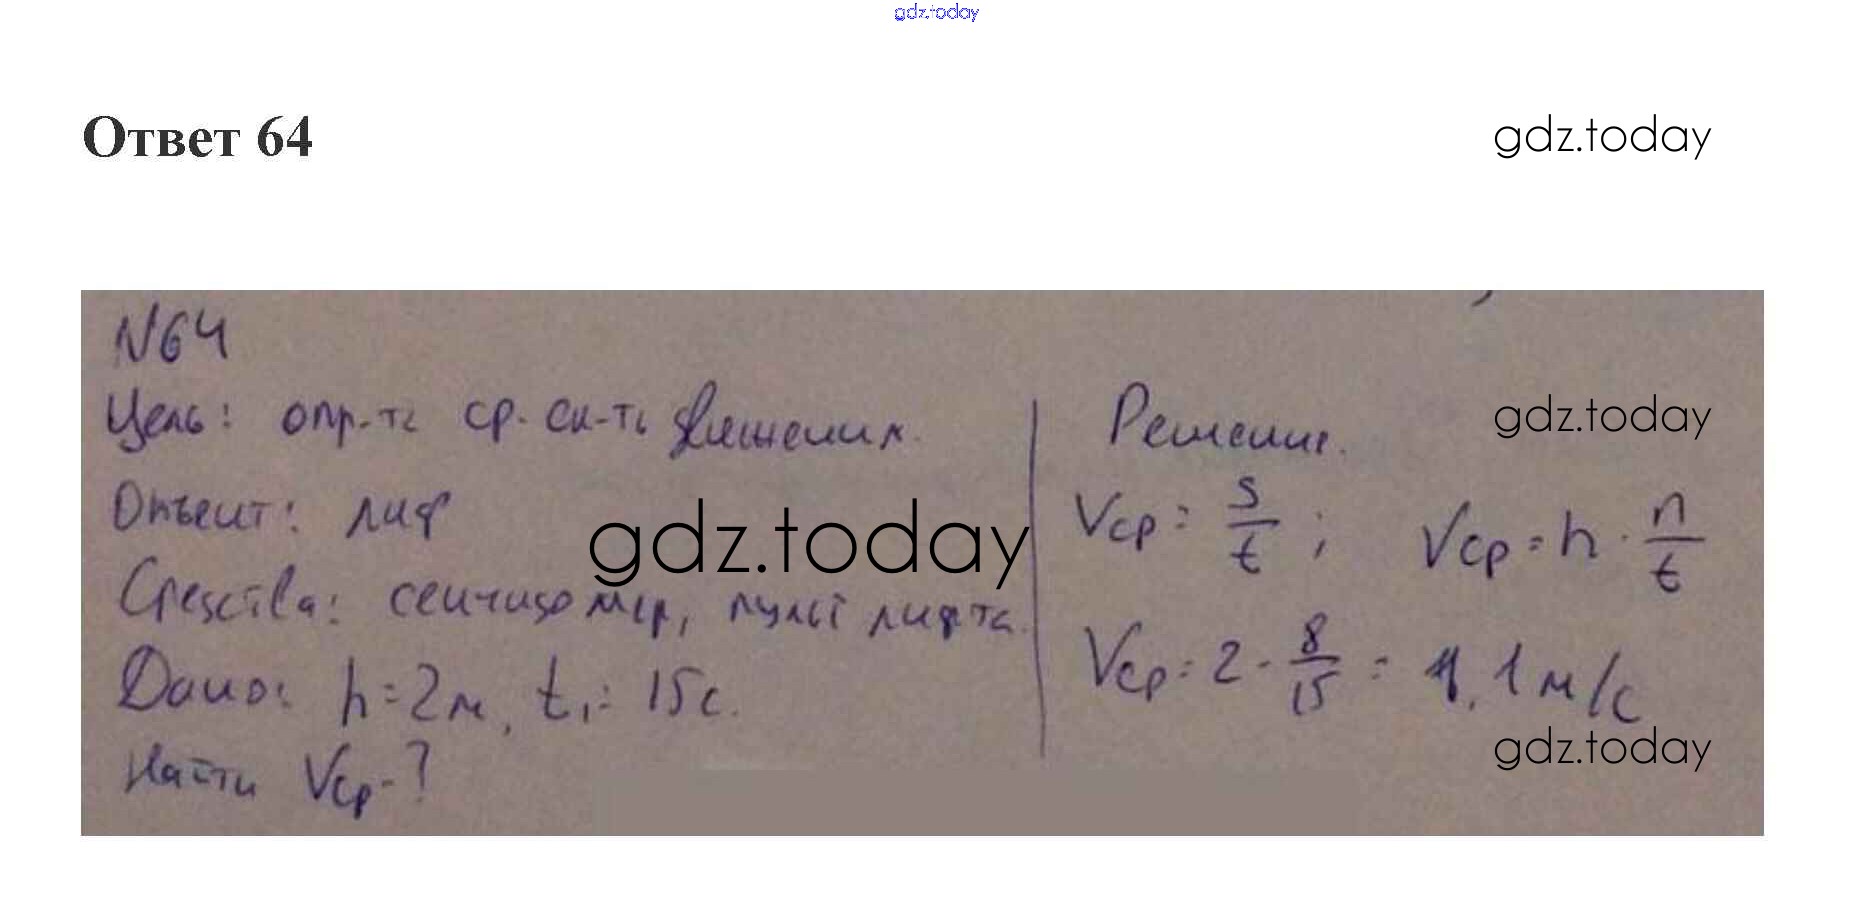 gdz.today
Ответ 64
gdz.today
N64
Цель: опр-ть ср. ск-ть движения.
Объект: лиф
Средства: секундомер, пульт лифта.
Дано: h = 2м, t₁ = 15с.
Найти Vср - ?
Решение.
Vср = s/t ; Vср = h · n/t
Vср = 2 · 8/15 = 1,1 м/с
gdz.today
gdz.today
gdz.today